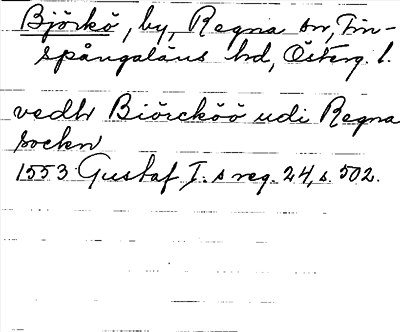 Björkö, by, Regna sn, Fin-
spångaläns hd, Österg. l.
vedh Biörcköö udi Regna
sockn
1553 Gustaf I.s reg. 24, s. 502.